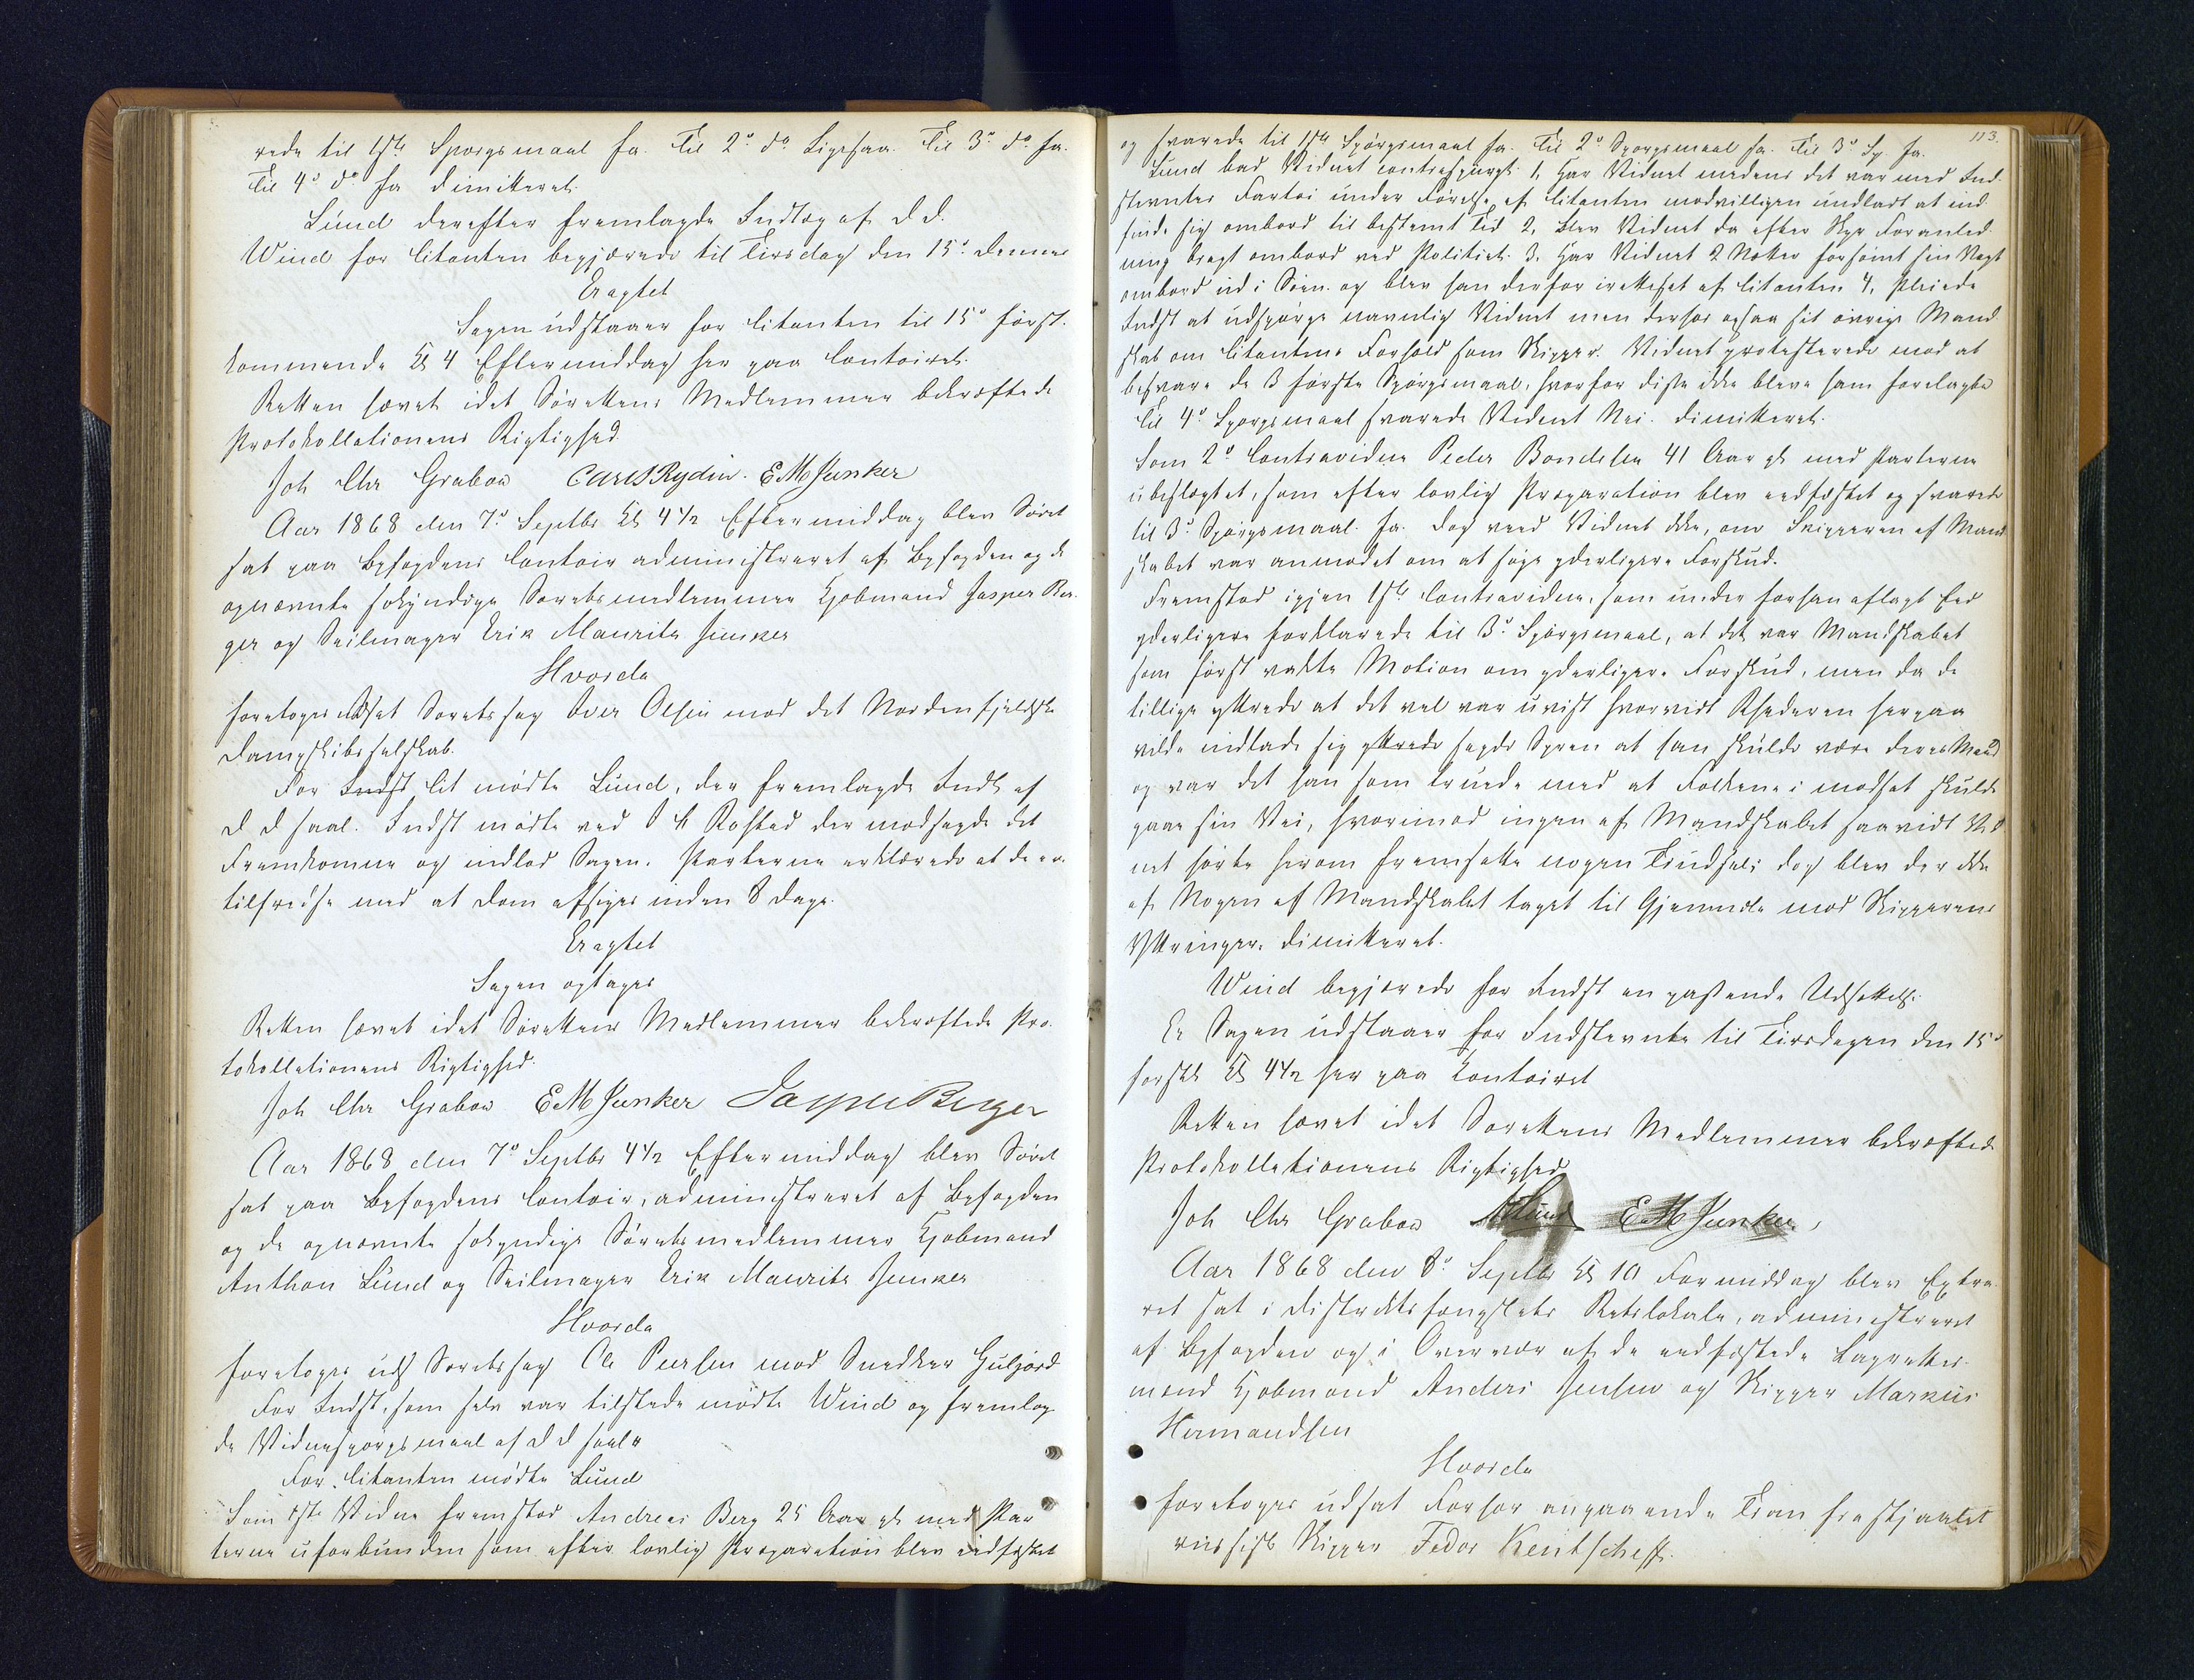 rede til 1ste Spørgsmaal Ja. Til 2º dº Ligesaa. Til 3º dº Ja.
Til 4º dº Ja dimitteret.
Lund derefter fremlagde Indlæg af D. D.
Wind for Citanten begjærede til Tirsdag den 15º dennes
Eragtet
Sagen udstaaer for Citanten til 15º først-
kommende Kl 4 Eftermiddag her paa Contoiret.
Retten hævet idet Sørettens Medlemmer bekræftede
Protokollationens Rigtighed.
Joh Chr Grabow Carl S Rydin. E M Junker
Aar 1868 den 7º Septbr Kl 4 1/2 Eftermiddag blev Søret
sat paa Byfogdens Contoir administreret af Byfogden og de
opnævnte søkyndige Søretsmedlemmer Kjøbmand Jasper Ber-
ger og Seilmager Erik Mauritz Junker
Hvorda
foretoges udsat Søretssag Iver Olsen mod det Nordenfjeldske
Dampskibsselskab.
For Cit mødte Lund, der fremlagde Indl af
D D saal. Indst mødte ved Rostad der modsagde det
Fremkomne og indlod Sagen. Parterne erklærede at de er
tilfredse med at Dom afsiges inden 8 Dage.
Eragtet
Sagen optages
Retten hævet idet Sørettens Medlemmer bekræftede Pro-
tokollationens Rigtighed.
Joh Chr Grabow E M Junker Jasper Berger
Aar 1868 den 7º Septbr 4 1/2 Eftermiddag blev Søret
sat paa Byfogdens Contoir, administreret af Byfogden
og de opnævnte søkyndige Søretsmedlemmer Kjøbmand
Anthon Lund og Seilmager Erik Mauritz Junker
Hvorda
foretoges uds Søretssag Ole Peersen mod Snedker Guljord
For Indst. som selv var tilstede mødte Wind og fremlag-
de Vidnespørgsmaal af D D saal.
For Citanten mødte Lund
Som 1ste Vidne fremstod Andreas Berg 25 Aar gl med Par-
terne uforbunden som efter lovlig Præparation blev eedfæstet
113.
og svarede til 1ste Spørgsmaal Ja. Til 2º Spørgsmaal Ja. Til 3º Sp Ja.
Lund bad Vidnet contraspurgt. 1, Har Vidnet medens det var med Ind-
stevntes Fartøi under Førelse af Citanten modvilligen undladt at ind-
finde sig ombord til bestemt Tid 2, Blev Vidnet da efter Skpr Foranled-
ning bragt ombord ved Politiet. 3, Har Vidnet 2 Nætter forsømt sin Vagt
ombord ud i Søen. og blev han derfor irettesat af Citanten 4, Pleiede
Indst at udspørge navnlig Vidnet men derhos ogsaa sit øvrige Mand-
skab om Citantens Forhold som Skipper. Vidnet protesterede mod at
besvare de 3 første Spørgsmaal, hvorfor disse ikke bleve ham forelagte
Til 4º Spørgsmaal svarede Vidnet Nei. dimitteret.
Som 2º Contravidne Peder Bondesen 41 Aar gl med Parterne
ubeslægtet, som efter lovlig Præparation blev eedfæstet og svarede
til 3º Spørgsmaal. Ja. dog veed Vidnet ikke, om Skipperen af Mand-
skabet var anmodet om at søge yderligere Forskud.
Fremstod igjen 1ste Contravidne, som under forhen aflagt Eed
yderligere forklarede til 3º Spørgsmaal, at det var Mandskabet
som først vakte Motion om yderligere Forskud, men da de
tillige yttrede at det vel var uvist hvorvidt Rhederen herpaa
vilde indlade sig yttrede sagde Spren at han skulde være deres Mand
og var det han som truede med at Folkene i modsat skulde
gaae sin Vei, hvorimod ingen af Mandskabet saavidt Vid
net hørte herom fremsatte nogen Trudsel; dog blev der ikke
af Nogen af Mandskabet taget til Gjenmæle mod Skipperens
Yttringer. dimitteret.
Wind begjærede for Indst en passende Udsættelse.
Er Sagen udstaaer for Indstevnte til Tirsdagen den 15º
førstk Kl 4 1/2 her paa Contoiret
Retten hævet idet Sørettens Medlemmer bekræftede
Protokollationens Rigtighed
Joh Chr Grabow A Lund E M Junker
Aar 1868 den 8º Septbr Kl 10 Formiddag blev Extra-
ret sat i Distriktsfængslets Retslokale, administreret
af Byfogden og i Overvær af de eedfæstede Lagrettes-
mænd Kjøbmand Anders Jensen og Skipper Markus
Hermandsen
Hvorda
foretoges udsat Forhør angaaende Tran frastjaalet
russisk Skipper Fedor Kentscheff.